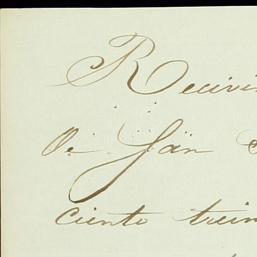 Recivi
De Jän S
Ciento trein